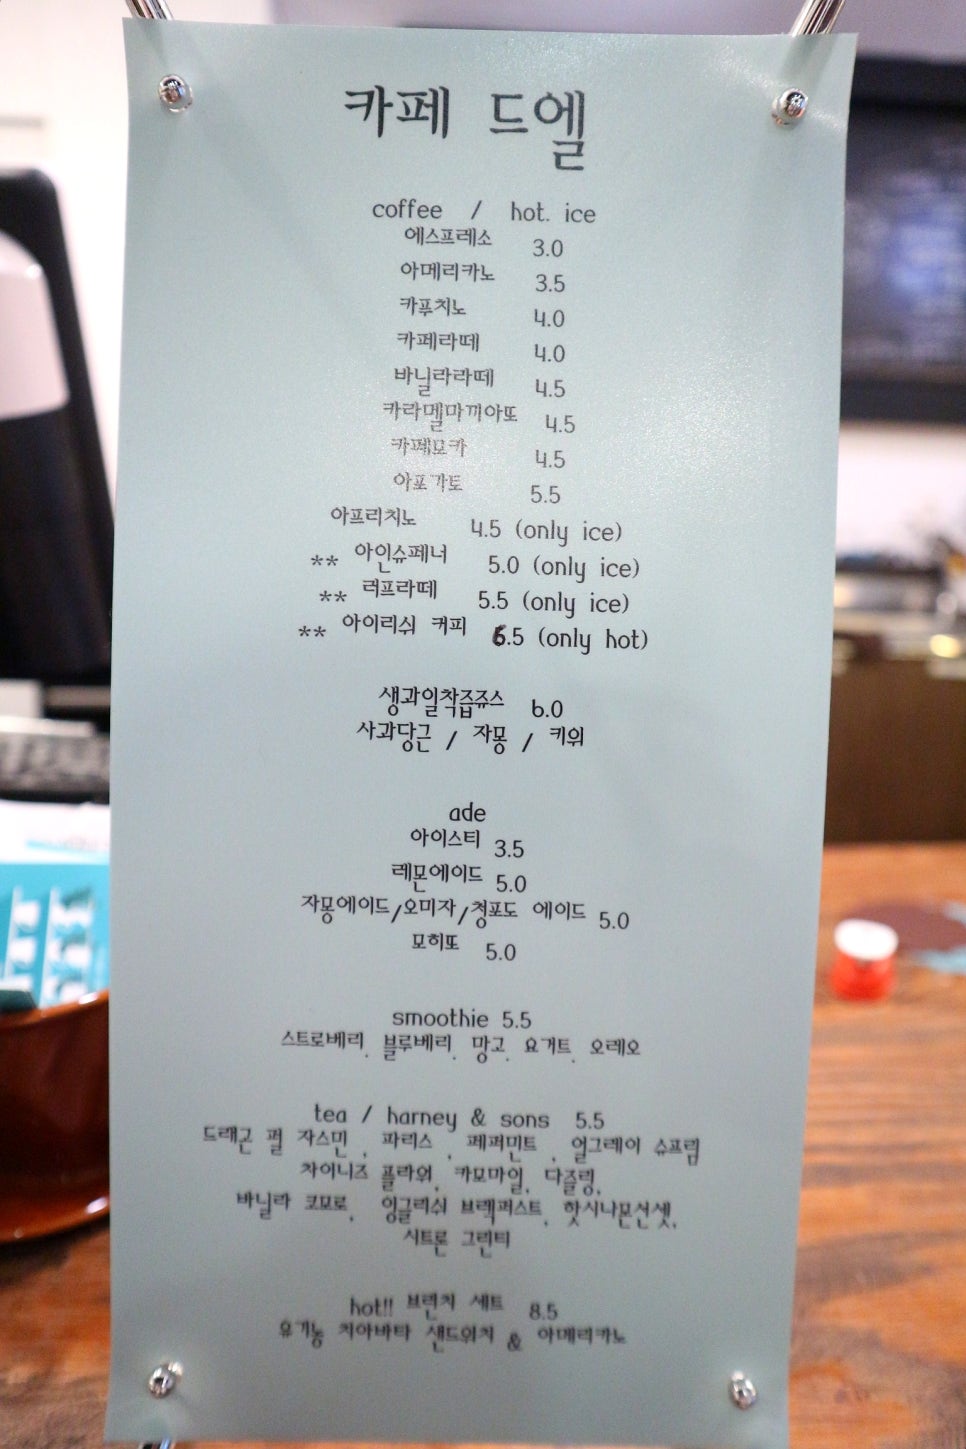 카페 드엘
coffee / hot. ice
에스프레소 3.0
아메리카노 3.5
카푸치노 4.0
카페라떼 4.0
바닐라라떼 4.5
카라멜마끼아또 4.5
카페모카 4.5
아포가토 5.5
아프리치노 4.5 (only ice)
** 아인슈페너 5.0 (only ice)
** 러프라떼 5.5 (only ice)
** 아이리쉬 커피 6.5 (only hot)
생과일착즙쥬스 6.0
사과당근 / 자몽 / 키위
ade
아이스티 3.5
레몬에이드 5.0
자몽에이드/오미자/청포도 에이드 5.0
모히또 5.0
smoothie 5.5
스트로베리. 블루베리. 망고. 요거트. 오레오
tea / harney & sons 5.5
드래곤 펄 자스민 , 파리스 , 페퍼민트 , 얼그레이 슈프림
차이니즈 플라워, 카모마일, 다즐링,
바닐라 코모로, 잉글리쉬 브랙퍼스트, 핫시나몬선셋,
시트론 그린티
hot!! 브런치 세트 8.5
유기농 치아바타 샌드위치 & 아메리카노